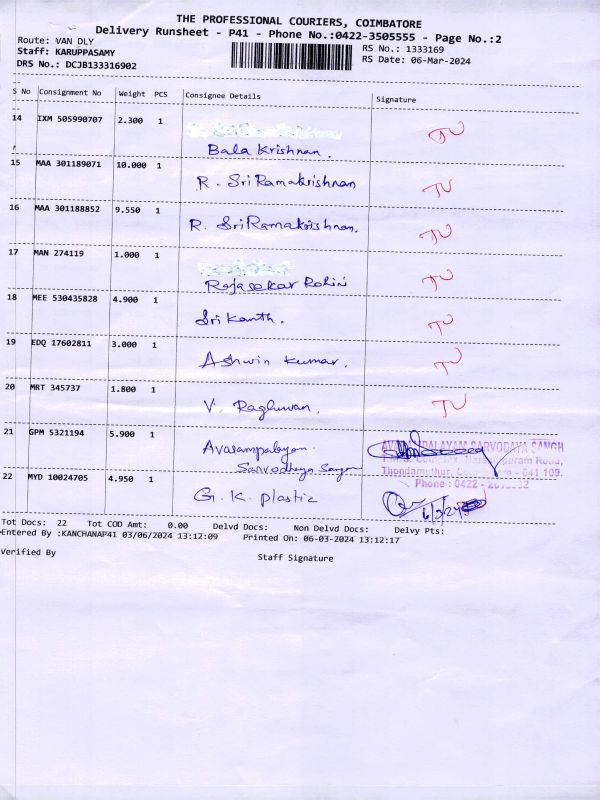 THE PROFESSIONAL COURIERS, COIMBATORE
Delivery Runsheet - P41 - Phone No.:0422-3505555 - Page No.:2
Route: VAN DLY
RS No.: 1333169
Staff: KARUPPASAMY
RS Date: 06-Mar-2024
DRS No.: DCJB133316902
S No Consignment No Weight PCS Consignee Details Signature
14 IXM 505990707 2.300 1 Bala Krishnan. TU
15 MAA 301189071 10.000 1 R. SriRamakrishnan TU
16 MAA 301188852 9.550 1 R. SriRamakrishnan. TU
17 MAN 274119 1.000 1 Rajasekar Rohini TU
18 MEE 530435828 4.900 1 Srikanth. TU
19 EDQ 17602811 3.000 1 Ashwin Kumar. TU
20 MRT 345737 1.800 1 V. Raghuvan. TU
21 GPM 5321194 5.900 1 Avarampalayam
Sarvodhya Sangh
SARVODAYA SANGH
Road,
Thondamuthur, - 641 109.
Phone : 0422 -
22 MYD 10024705 4.950 1 G. K. plastic 6/3/24
Tot Docs: 22 Tot COD Amt: 0.00 Delvd Docs: Non Delvd Docs: Delvy Pts:
Entered By :KANCHANAP41 03/06/2024 13:12:09 Printed On: 06-03-2024 13:12:17
Verified By
Staff Signature